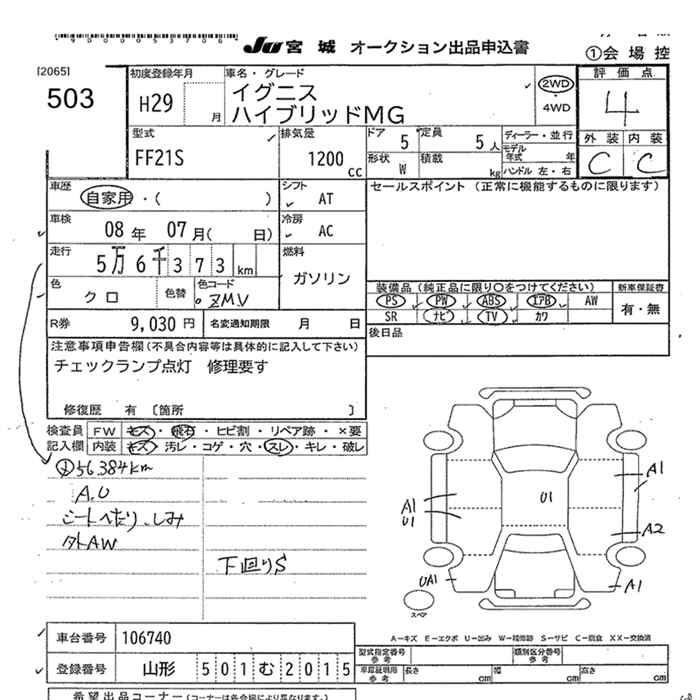 JU 宮城 オークション出品申込書
①会場控
[2065]
503
初度登録年月
H29 月
車名・グレード
イグニス
ハイブリッドMG
2WD
・
4WD
評価点
4
型式
FF21S
排気量
1200
cc
ドア
5
定員
5 人
形状
W
積載
kg
ディーラー・並行
モデル
年式 年
ハンドル 左・右
外装 内装
C C
車歴
自家用・( )
シフト
AT
セールスポイント(正常に機能するものに限ります)
車検
08年 07月( 日)
冷房
AC
走行
5万6千373 km
燃料
ガソリン
色
クロ
色替
色コード
ZMV
装備品(純正品に限り○をつけてください)
新車保証書
PS PW ABS エアB AW
SR ナビ TV カワ
有・無
R券 9,030 円
名変通知期限 月 日
後日品
注意事項申告欄(不具合内容等は具体的に記入して下さい)
チェックランプ点灯 修理要す
修復歴 有 〔箇所 〕
検査員 FW キズ・飛石・ヒビ割・リペア跡・×要
記入欄 内装 キズ・汚レ・コゲ・穴・スレ・キレ・破レ
56384km
A.U
シートへたり、しみ
外AW
下回りS
U1
A1
U1
A1
A2
UA1
A1
スペア
A−キズ E−エクボ U−凹み W−補修跡 S−サビ C−腐食 XX−交換済
車台番号 106740
登録番号 山形 501む2015
型式指定番号
参考
類別区分番号
参考
車庫証明用
参考
長さ cm
幅 cm
高さ cm
希望出品コーナー(コーナーは各会場により異なります。)